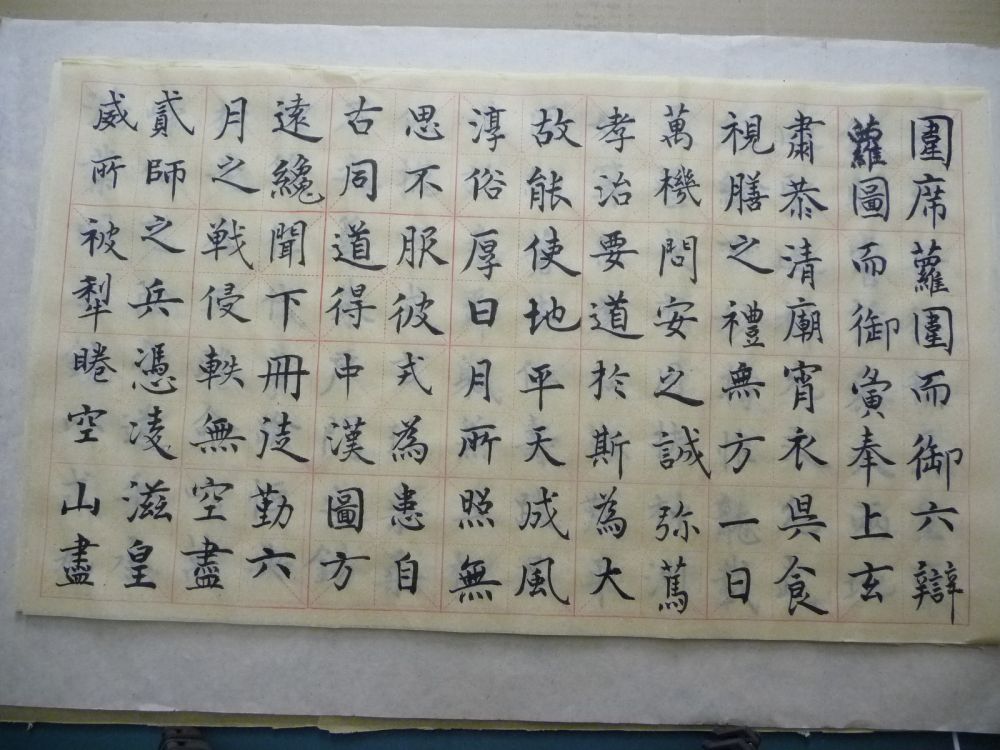 圍席蘿圍而御六辯
蘿圖而御寅奉上玄
肅恭清廟宵衣旲食
視膳之禮無方一日
萬機問安之誠弥篤
孝治要道於斯為大
故能使地平天成風
淳俗厚日月所照無
思不服彼式為患自
古同道得中漢圖方
遠纔聞下冊徒勤六
月之戦侵軼無空盡
貳師之兵憑凌滋皇
威所被犁睠空山盡